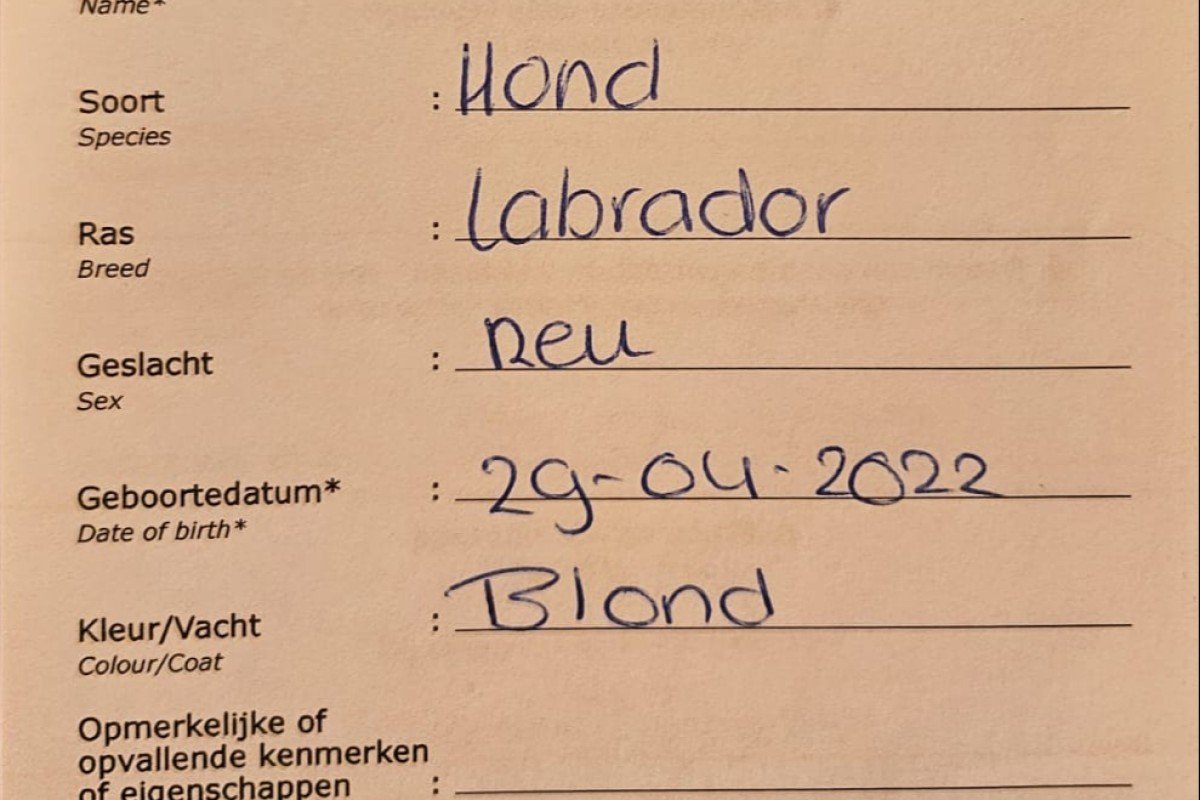 Name*
Soort : Hond
Species
Ras : Labrador
Breed
Geslacht : Reu
Sex
Geboortedatum* : 29-04-2022
Date of birth*
Kleur/Vacht : Blond
Colour/Coat
Opmerkelijke of
opvallende kenmerken
of eigenschappen :